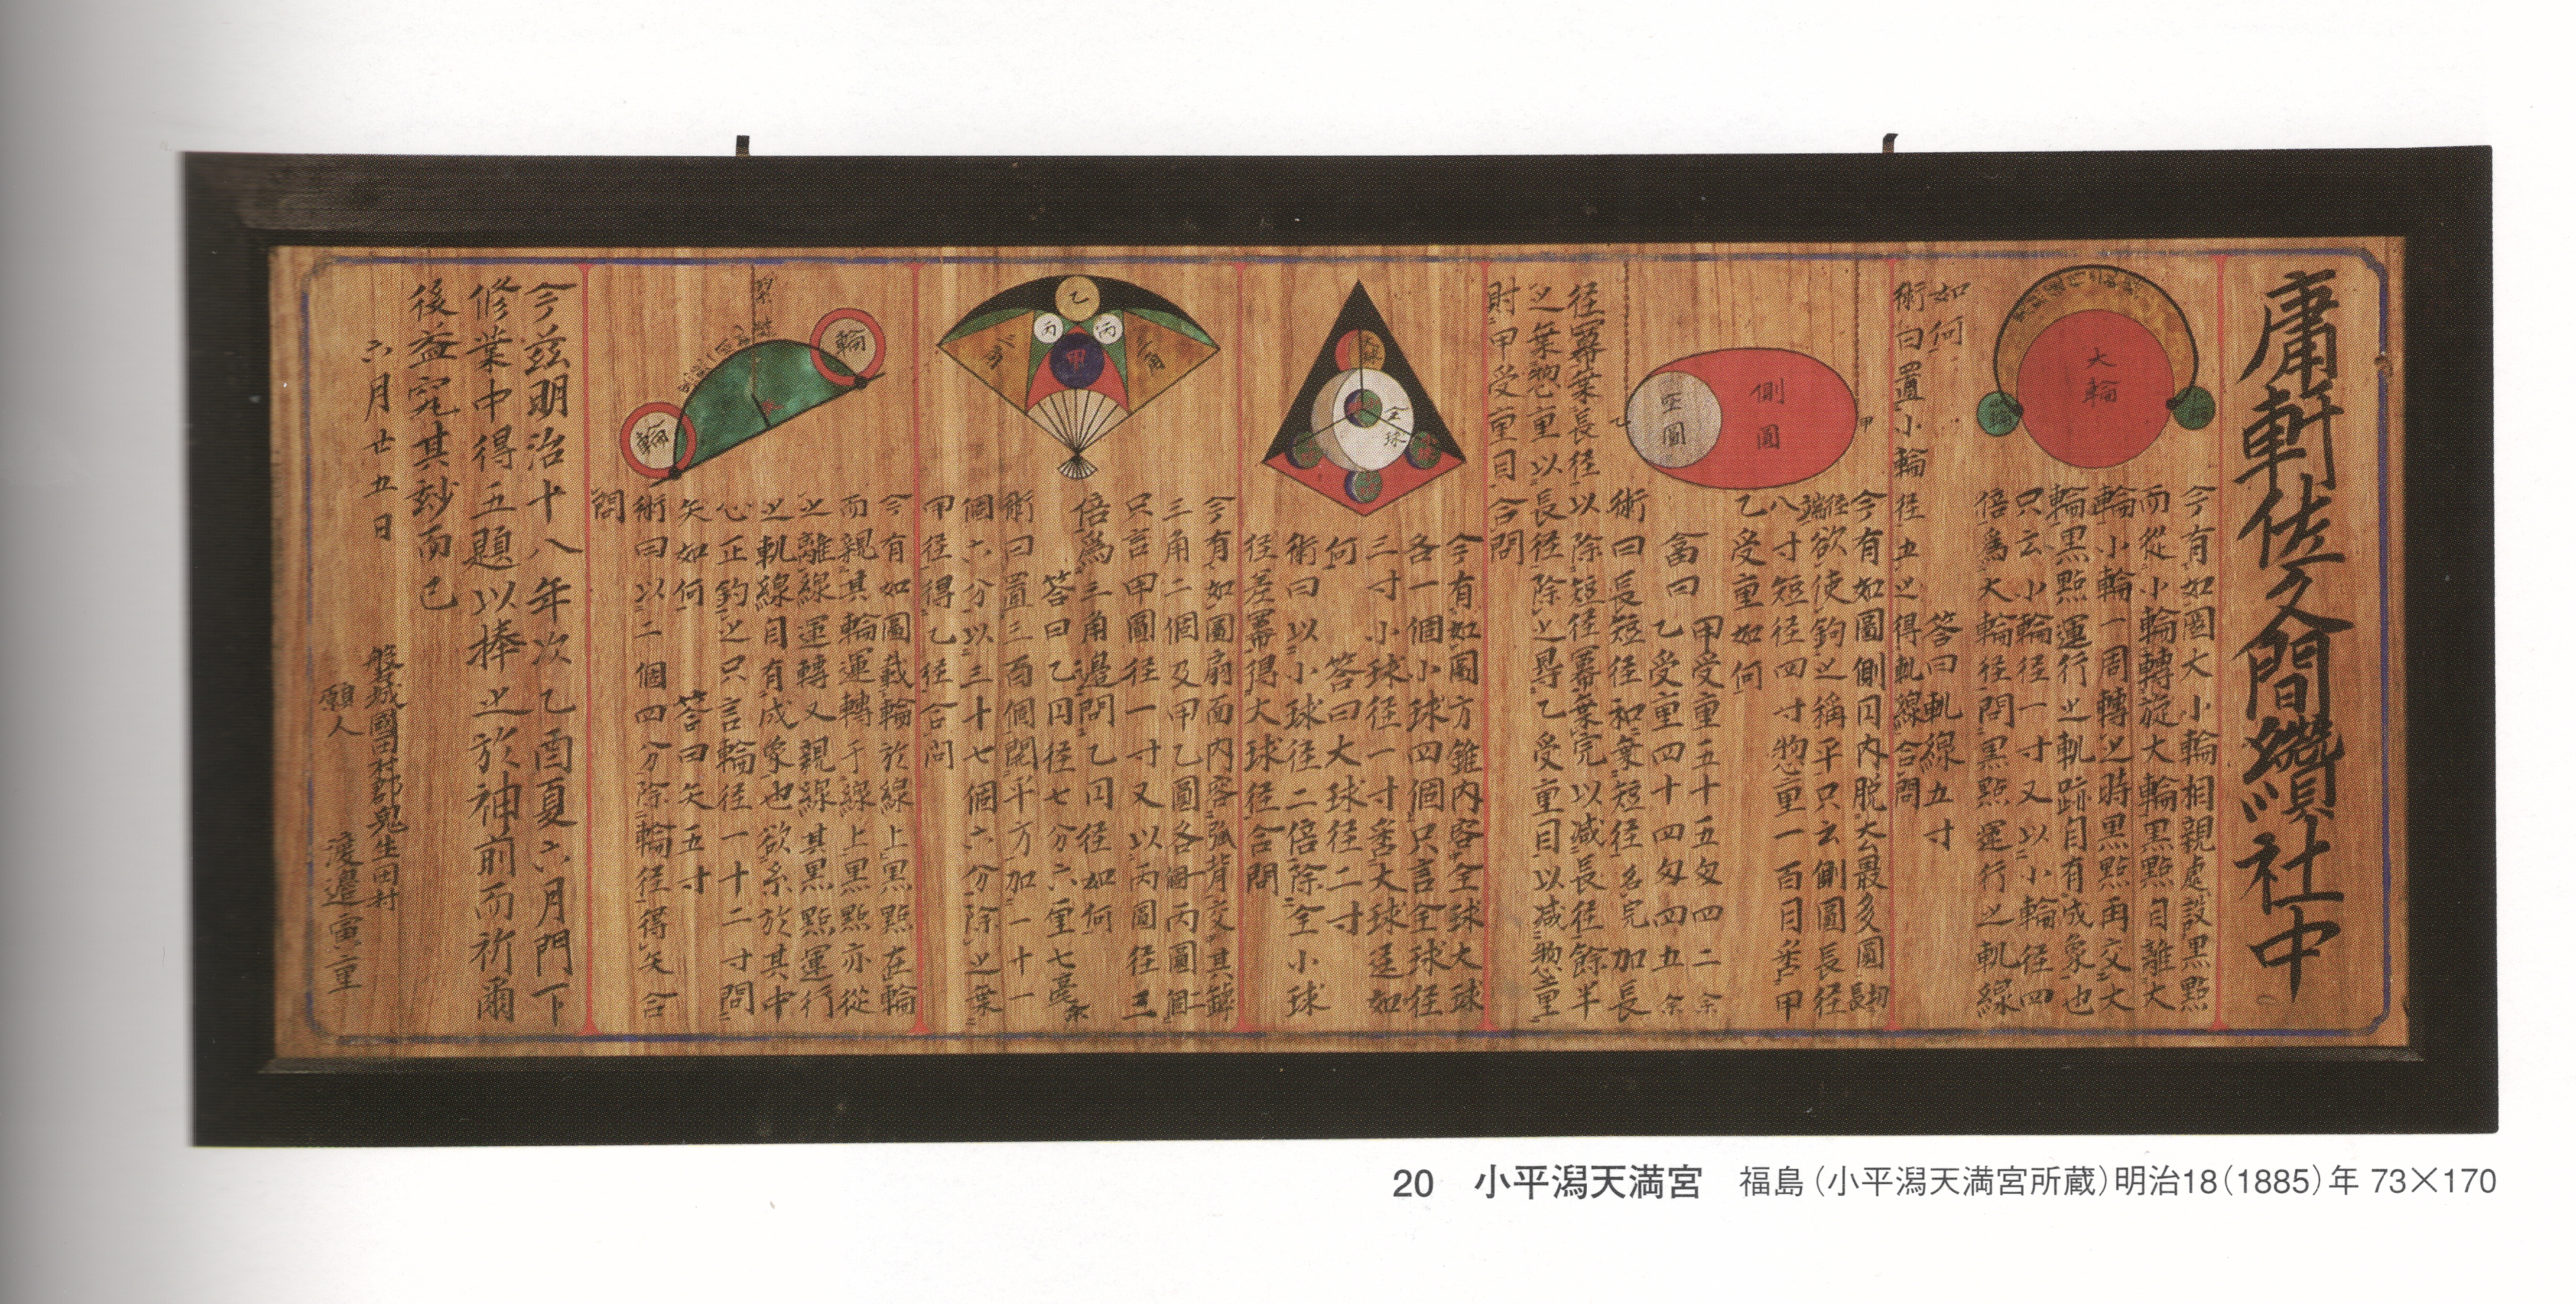 庸軒佐久間纘社中
今有如圖大小輪相親處設黒點
而從小輪轉旋大輪黒點自離大
輪小輪一周轉之時黒點再交大
輪黒點運行之軌跡自有成象也
只云小輪径一寸又以小輪径四
倍為大輪径問黒點運行之軌線
如何
答曰軌線五寸
術曰置小輪径五之得軌線合問
大輪
小輪
小輪
今有如圖側円内脱去最多圓
径欲使鉤之稱平只云側圓長径
八寸短径四寸惣重一百目*問*甲
乙受重如何
答曰
甲受重五十五匁四二余
乙受重四十四匁四五余
術曰長短径和乗短径名完加長
径冪乗長径以除短径冪乗完以減長径餘半
之乗惣重以長径除之得乙受重目以減惣重
財甲受重目合問
側圓
空圓
甲
乙
今有如圖方錐内容全球大球
各一個小球四個只言全球径
三寸小球径一寸問大球径如
何
答曰大球径二寸
術曰以小球径二倍除全小球
径差冪得大球径合問
全球
今有如圖扇面内容弧背交其罅
三角二個及甲乙圓各一個丙圓二個
只言甲圓径一寸又以丙圓径三
倍為三角邊問乙円径如何
答曰乙円径七分六厘七毫余
術曰置三百個開平方加一十一
個六分以三十七個六分除之乗
甲径得乙径合問
乙
丙
丙
甲
三角
三角
今有如圖載輪於線上黒點在輪
而親其輪運轉于線上黒點亦從
之離線運轉又親線其黒點運行
之軌線自有成象也欲糸於其中
心正鈎之只言輪径一十二寸問
矢如何
答曰矢五寸
術曰以二個四分除輪径得矢合
問
輪
輪
今茲明治十八年次乙酉夏六月門下
修業中得五題以捧之於神前而祈爾
後益究其玅而已
六月廿五日
磐城國田村郡鬼生田村
願人
渡邉寅重
20 小平潟天満宮 福島（小平潟天満宮所蔵）明治18（1885）年 73×170